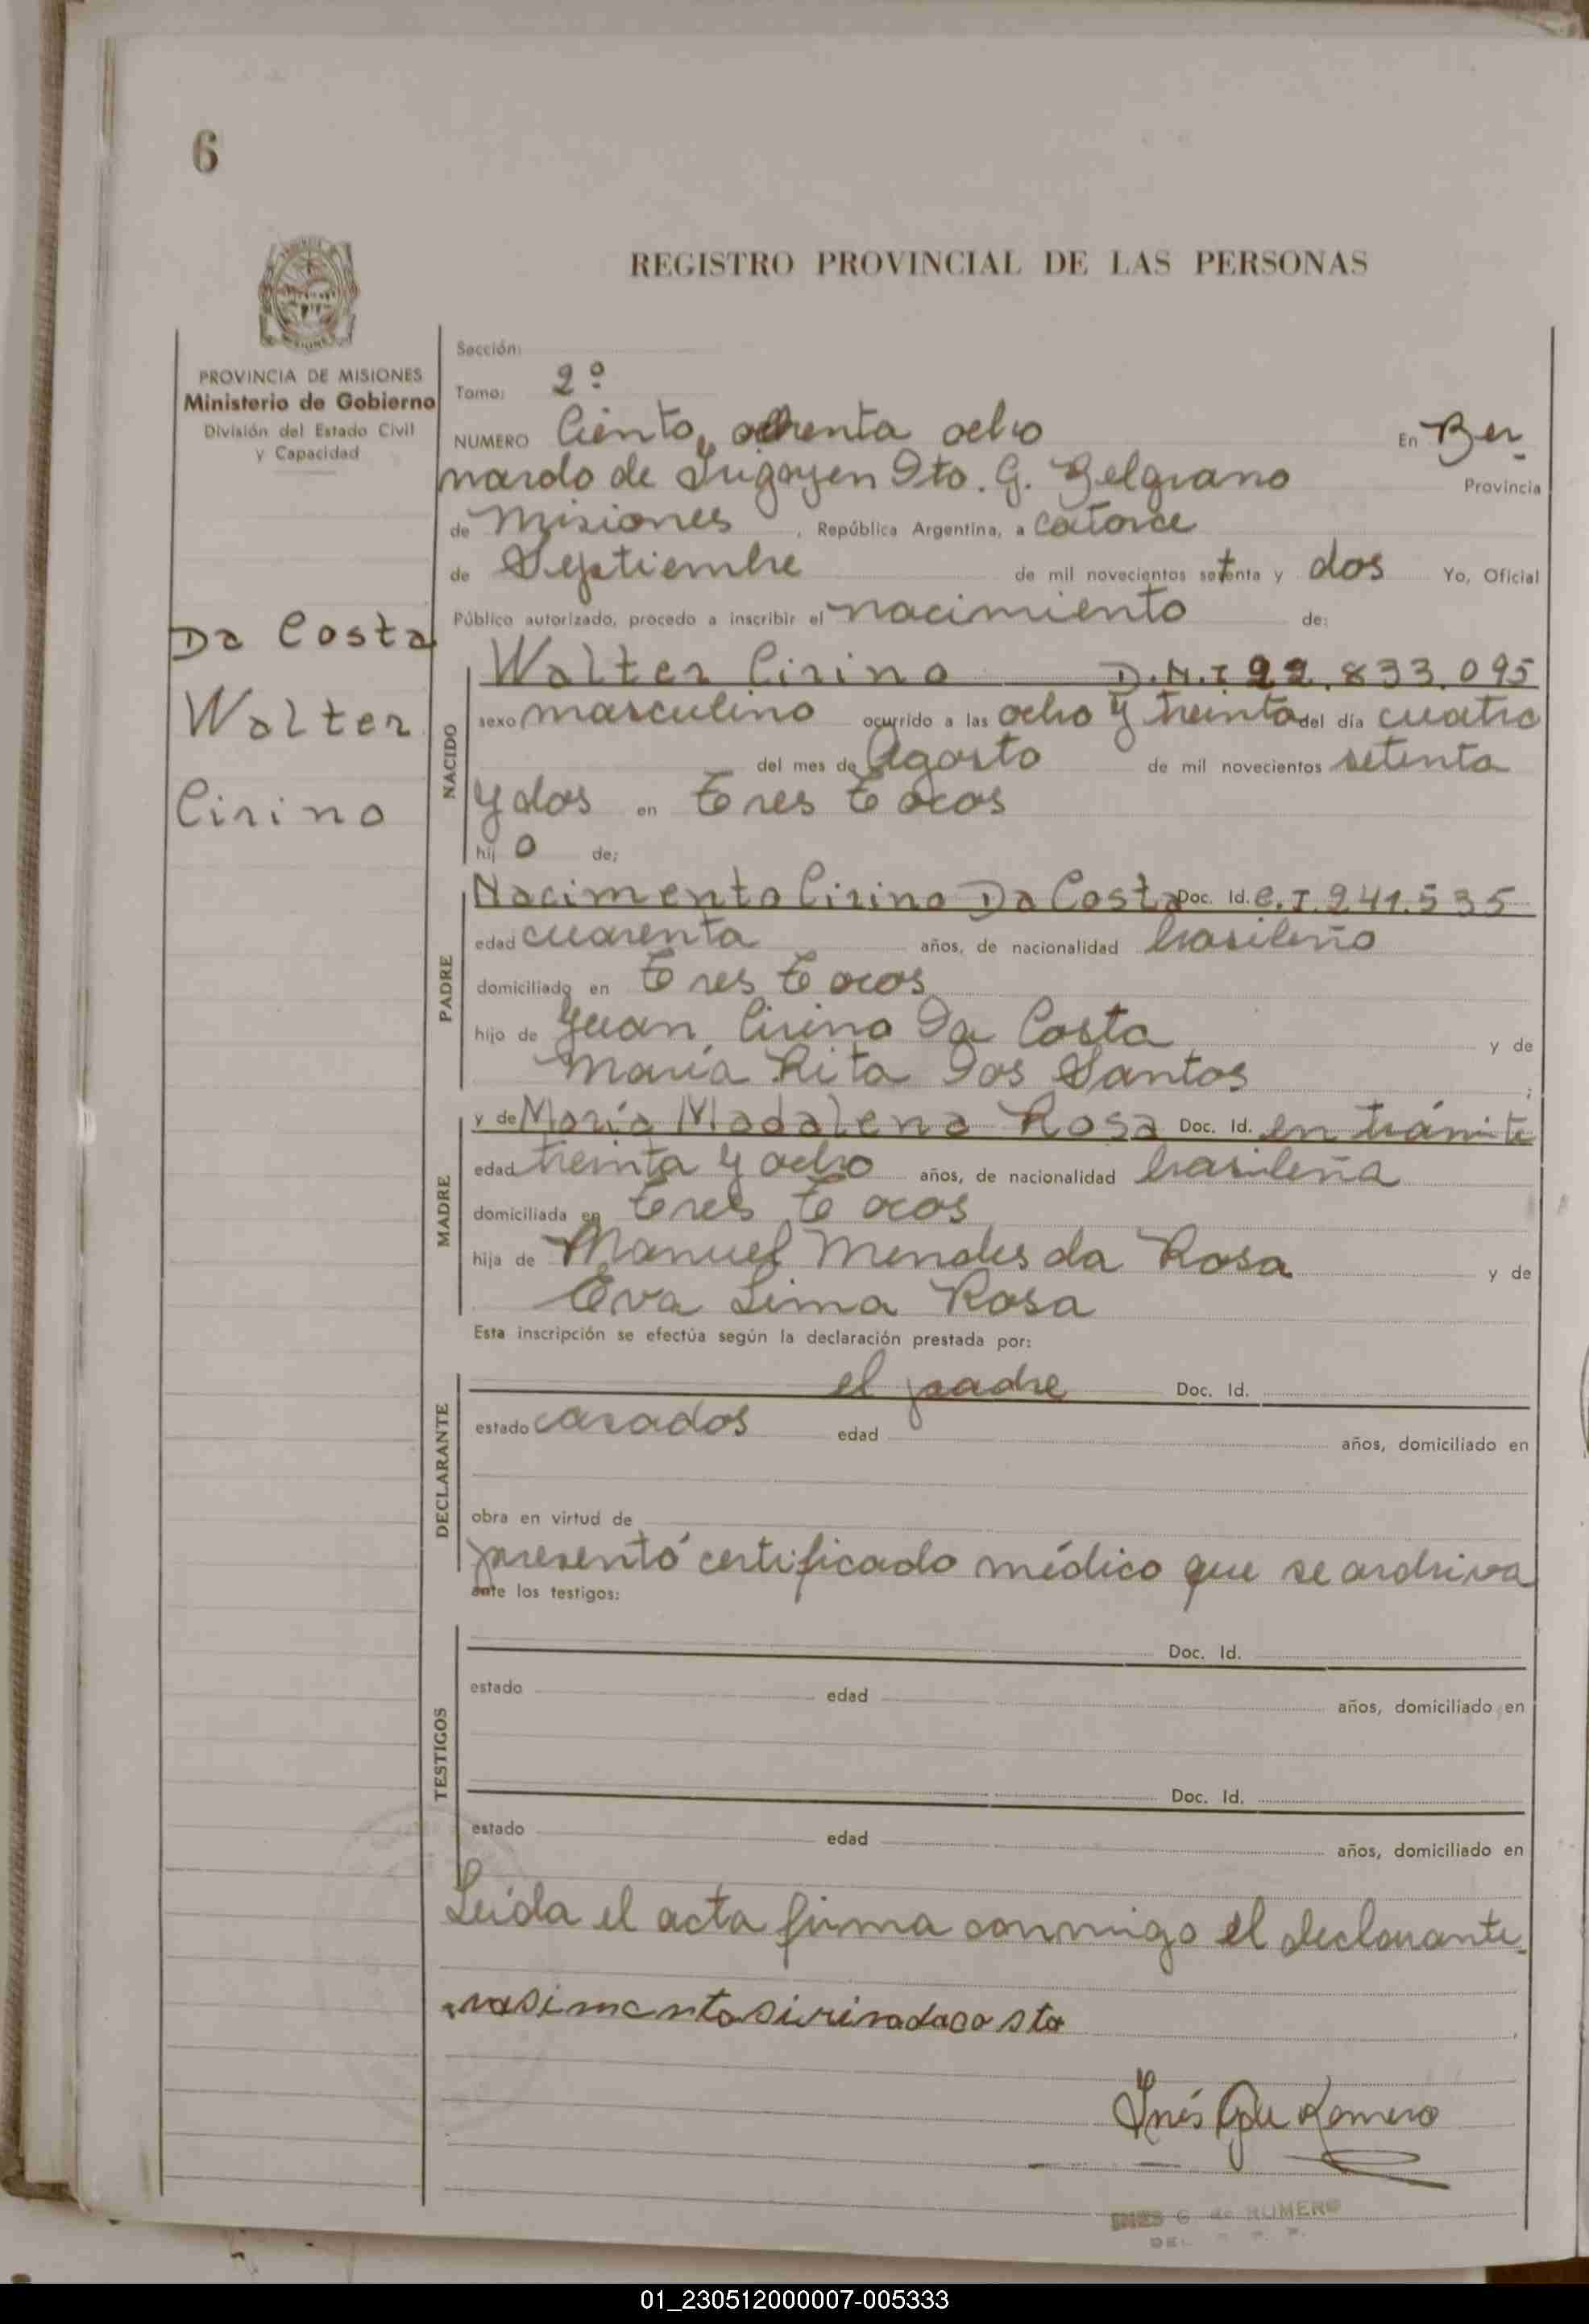 6
REGISTRO PROVINCIAL DE LAS PERSONAS
PROVINCIA DE MISIONES
Ministerio de Gobierno
División del Estado Civil
y Capacidad
Da Costa
Walter
Cirino
Sección:
Tomo: 2º
NUMERO Ciento ochenta ocho En Ber-
nardo de Irigoyen Dto. G. Belgrano Provincia
de Misiones, República Argentina, a catorce
de Septiembre de mil novecientos setenta y dos Yo, Oficial
Público autorizado, procedo a inscribir el nacimiento de:
NACIDO
Walter Cirino D.N.I 22.833.095
sexo masculino ocurrido a las ocho y treinta del día cuatro
del mes de Agosto de mil novecientos setenta
y dos en Tres Tocos
hij o de:
PADRE
Nacimento Cirino Da Costa Doc. Id. C.I. 241.535
edad cuarenta años, de nacionalidad brasileño
domiciliado en Tres Tocos
hijo de Juan Cirino Da Costa y de
María Rita Dos Santos ;
MADRE
y de María Madalena Rosa Doc. Id. en trámite
edad treinta y ocho años, de nacionalidad brasileña
domiciliada en Tres Tocos
hija de Manuel Mendes da Rosa y de
Eva Lima Rosa
Esta inscripción se efectúa según la declaración prestada por:
DECLARANTE
el padre Doc. Id.
estado casados edad años, domiciliado en
obra en virtud de
presentó certificado médico que se archiva
ante los testigos:
TESTIGOS
Doc. Id.
estado edad años, domiciliado en
Doc. Id.
estado edad años, domiciliado en
Leída el acta firma conmigo el declarante.
nasimentosirinodacosta
Inés G de Romero
INES G. de ROMERO
01_230512000007-005333